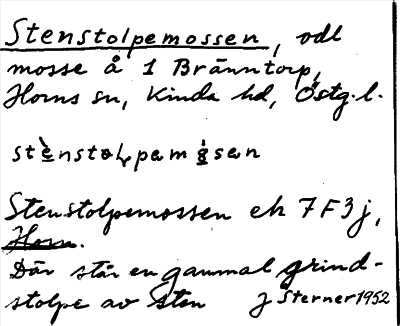 Stenstolpemossen, odl
mosse å 1 Bränntorp,
Horns sn, Kinda hd, Östg.l.
Stenstolpemossen ek 7F3j,
Horn.
Där står en gammal grind-
stolpe av sten J Sterner 1952